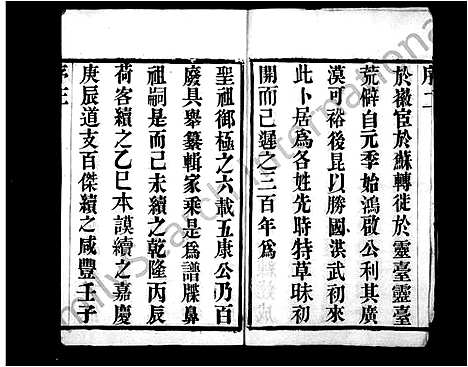 序二
於徽宦於蘇轉徙於靈臺靈臺
荒僻自元季始鴻啟公利其廣
漠可裕後昆以勝國洪武初來
此卜居為各姓先時特草昧初
開而已遲之三百年為
聖祖御極之六載五康公乃百
廢具舉纂輯家乘是為譜牒鼻
祖嗣是而己未續之乾隆丙辰
荷客續之乙巳本謨續之嘉慶
庚辰道支百傑續之咸豐壬子
序三